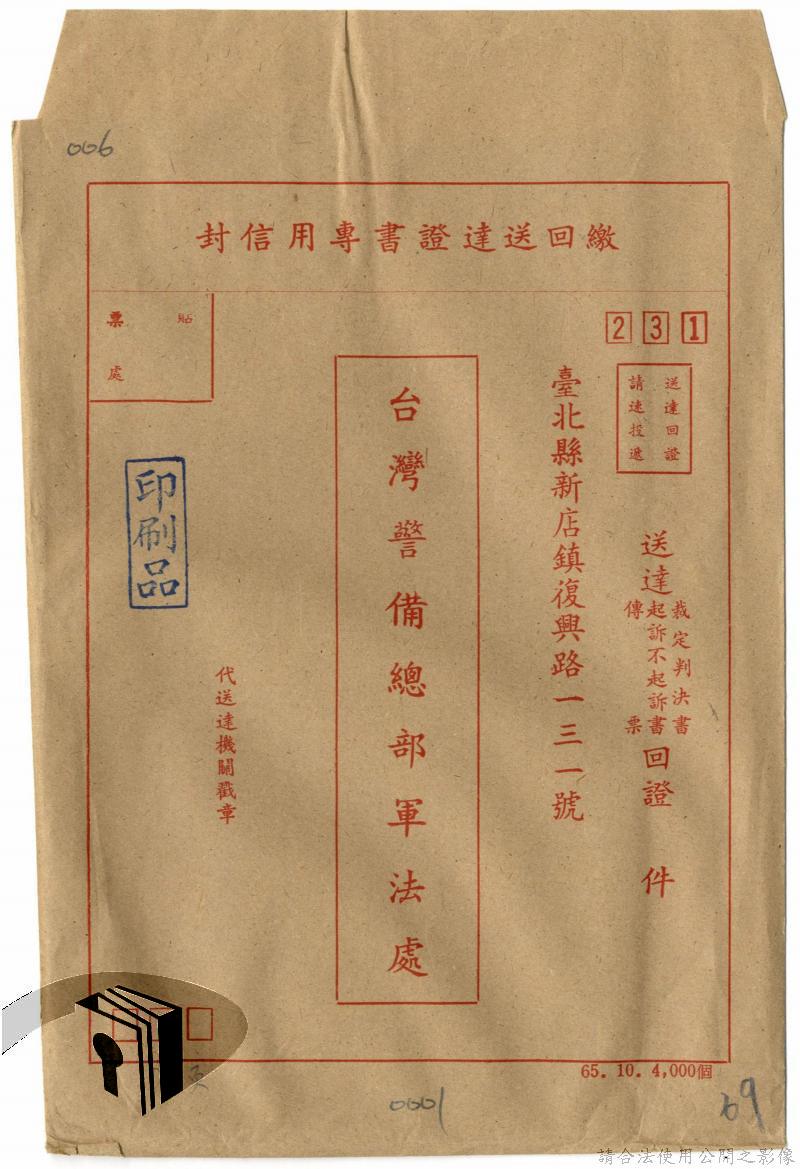 006
繳回送達證書專用信封
貼
票
處
231
送達回證
請速投遞
送達
裁定判決書
起訴不起訴書
傳票
回證 件
臺北縣新店鎮復興路一三一號
台灣警備總部軍法處
印刷品
代送達機關戳章
65.10.4,000個
0001
69
請合法使用公開之影像